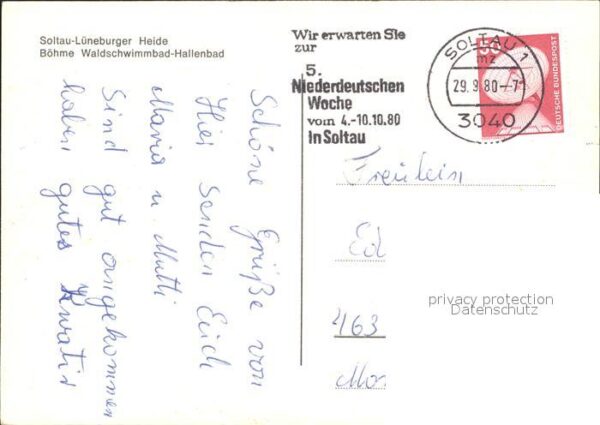 Soltau-Lüneburger Heide
Böhme Waldschwimmbad-Hallenbad
Wir erwarten Sie
zur
5.
Niederdeutschen
Woche
vom 4.-10.10.80
In Soltau
SOLTAU 1
mz
29.9.80-7
3040
50
DEUTSCHE BUNDESPOST
Schöne Grüße von
Hier senden Euch
Maria u. Mutti
Sind gut angekommen
haben gutes
Fräulein
Ed
463
privacy protection
Datenschutz